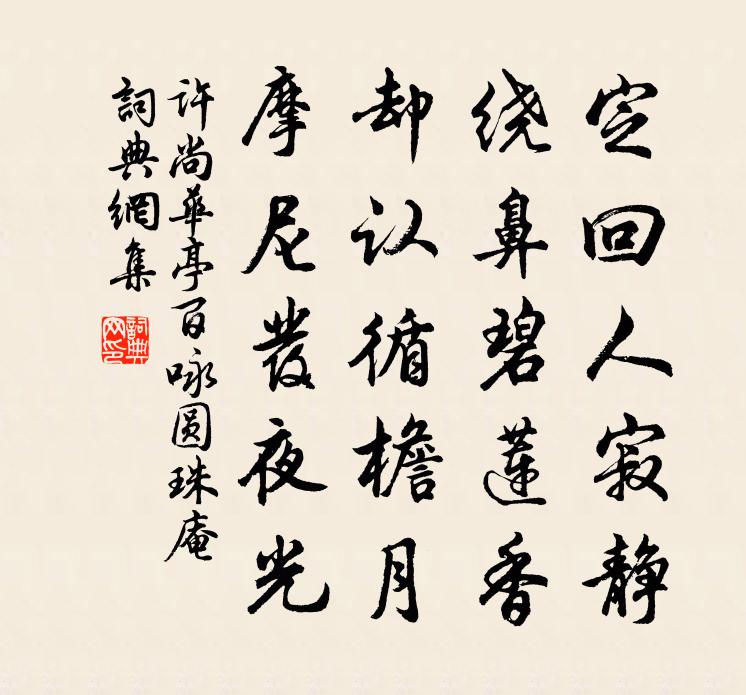 定回人寂静
绕鼻碧莲香
却认循檐月
摩尼發夜光
许尚華亭百咏圆珠庵
詞典網集
詞典网印